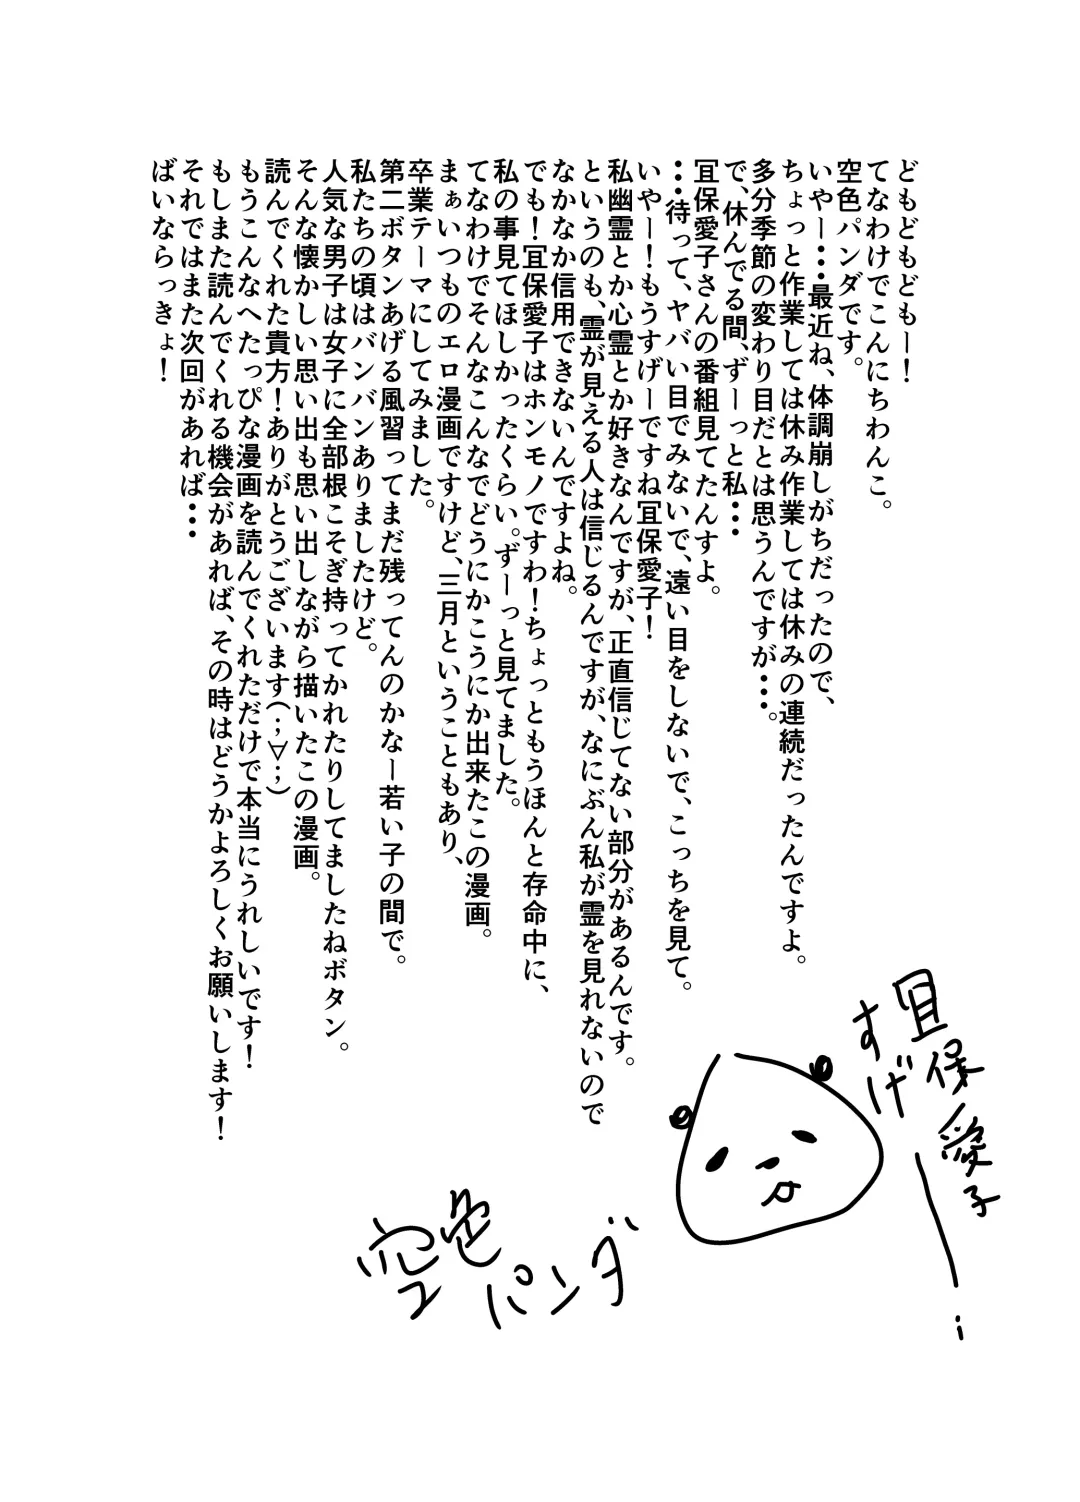 どもどもどもー！
てなわけでこんにちわんこ。
空色パンダです。
いやー・・・最近ね、体調崩しがちだったので、
ちょっと作業しては休み作業しては休みの連続だったんですよ。
多分季節の変わり目だとは思うんですが・・・。
で、休んでる間、ずーっと私・・・
冝保愛子さんの番組見てたんすよ。
・・・待って、ヤバい目でみないで、遠い目をしないで、こっちを見て。
いやー！もうすげーですね冝保愛子！
私幽霊とか心霊とか好きなんですが、正直信じてない部分があるんです。
というのも、霊が見える人は信じるんですが、なにぶん私が霊を見れないので
なかなか信用できないんですよね。
でも！冝保愛子はホンモノですわ！ちょっともうほんと存命中に、
私の事見てほしかったくらい。ずーっと見てました。
てなわけでそんなこんなでどうにかこうにか出来たこの漫画。
まぁいつものエロ漫画ですけど、三月ということもあり、
卒業テーマにしてみました。
第二ボタンあげる風習ってまだ残ってんのかなー若い子の間で。
私たちの頃はバンバンありましたけど。
人気な男子は女子に全部根こそぎ持ってかれたりしてましたねボタン。
そんな懐かしい思い出も思い出しながら描いたこの漫画。
読んでくれた貴方！ありがとうございます(；∀；)
もうこんなへたっぴな漫画を読んでくれただけで本当にうれしいです！
もしまた読んでくれる機会があれば、その時はどうかよろしくお願いします！
それではまた次回があれば・・・
ばいならっきょ！
冝保愛子
すげー！
空色パンダ